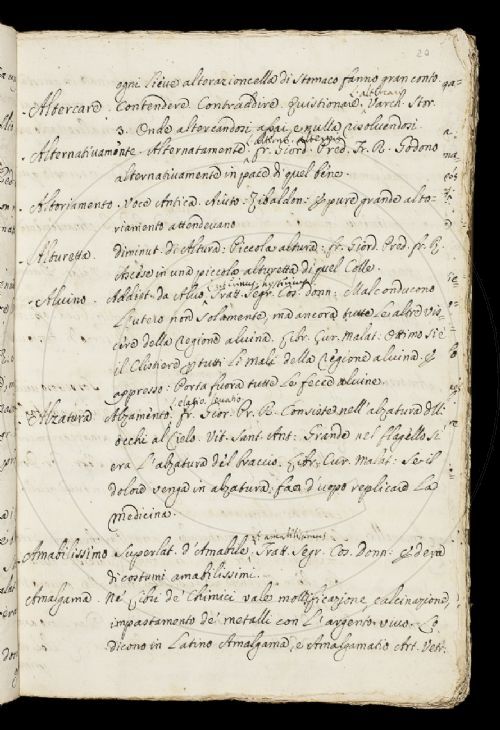 22
ogni lieve alterazioncella di stomaco fanno gran conto.
Altercare. Contendere Contraddire Quistionare. Varch. Stor.
3. Onde altercandosi assai, e nulla risolvendosi
Alternativamente. Alternatamente. fr. Giord. Pred. Fr. R. Godono
alternativamente in pace di quel bene.
Altoriamento. Voce Antica. Aiuto. Zibaldon: e pure grande alto-
riamento attendevano
Alturetta. diminut. di Altura. Piccola altura. fr. Giord. Pred. fr. R.
Ascese in una piccola alturetta di quel Colle.
Alvino. Addiet. da Alvo. Tratt. Segr. Cos. Donn. Mal conducono
l'utero non solamente, ma ancora tutte le altre vis-
cere della regione alvina. Libr. Cur. Malat. Ottimo si è
il Clistiero per tutti li mali della regione alvina. E
appresso. Porta fuora tutte le fecce alvine.
elatio
Alzatura. Alzamento. fr. Gior. Pr. R. Consiste nell'alzatura degl'
occhi al Cielo. Vit. Sant. Ant. Grande nel flagello si
era l'alzatura del braccio. Libr. Cur. Malat. Se il
dolore venga in alzatura, fa d'uopo replicare la
medicina.
Amabilissimo Superlat. d'Amabile. Tratt. Segr. Cos. Donn.
di costumi amabilissimi.
Amalgama. Ne' libri de' Chimici vale mollificazione, calcinazione,
impastamento de' metalli con l'argento vivo. Lo
dicono in Latino Amalgama, e Amalgamatio Art. Vetr.